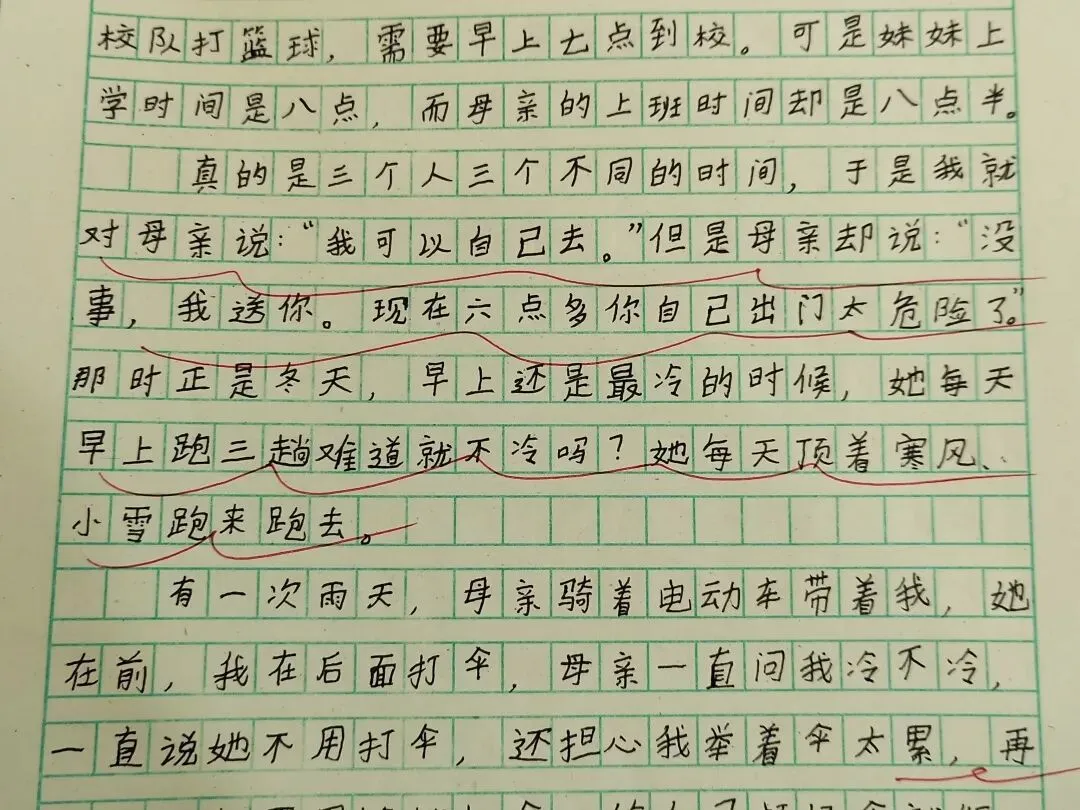 校队打篮球，需要早上七点到校。可是妹妹上
学时间是八点，而母亲的上班时间却是八点半。
真的是三个人三个不同的时间，于是我就
对母亲说：“我可以自己去。”但是母亲却说：“没
事，我送你。现在六点多你自己出门太危险了。”
那时正是冬天，早上还是最冷的时候，她每天
早上跑三趟难道就不冷吗？她每天顶着寒风、
小雪跑来跑去。
有一次雨天，母亲骑着电动车带着我，她
在前，我在后面打伞，母亲一直问我冷不冷，
一直说她不用打伞，还担心我举着伞太累，再